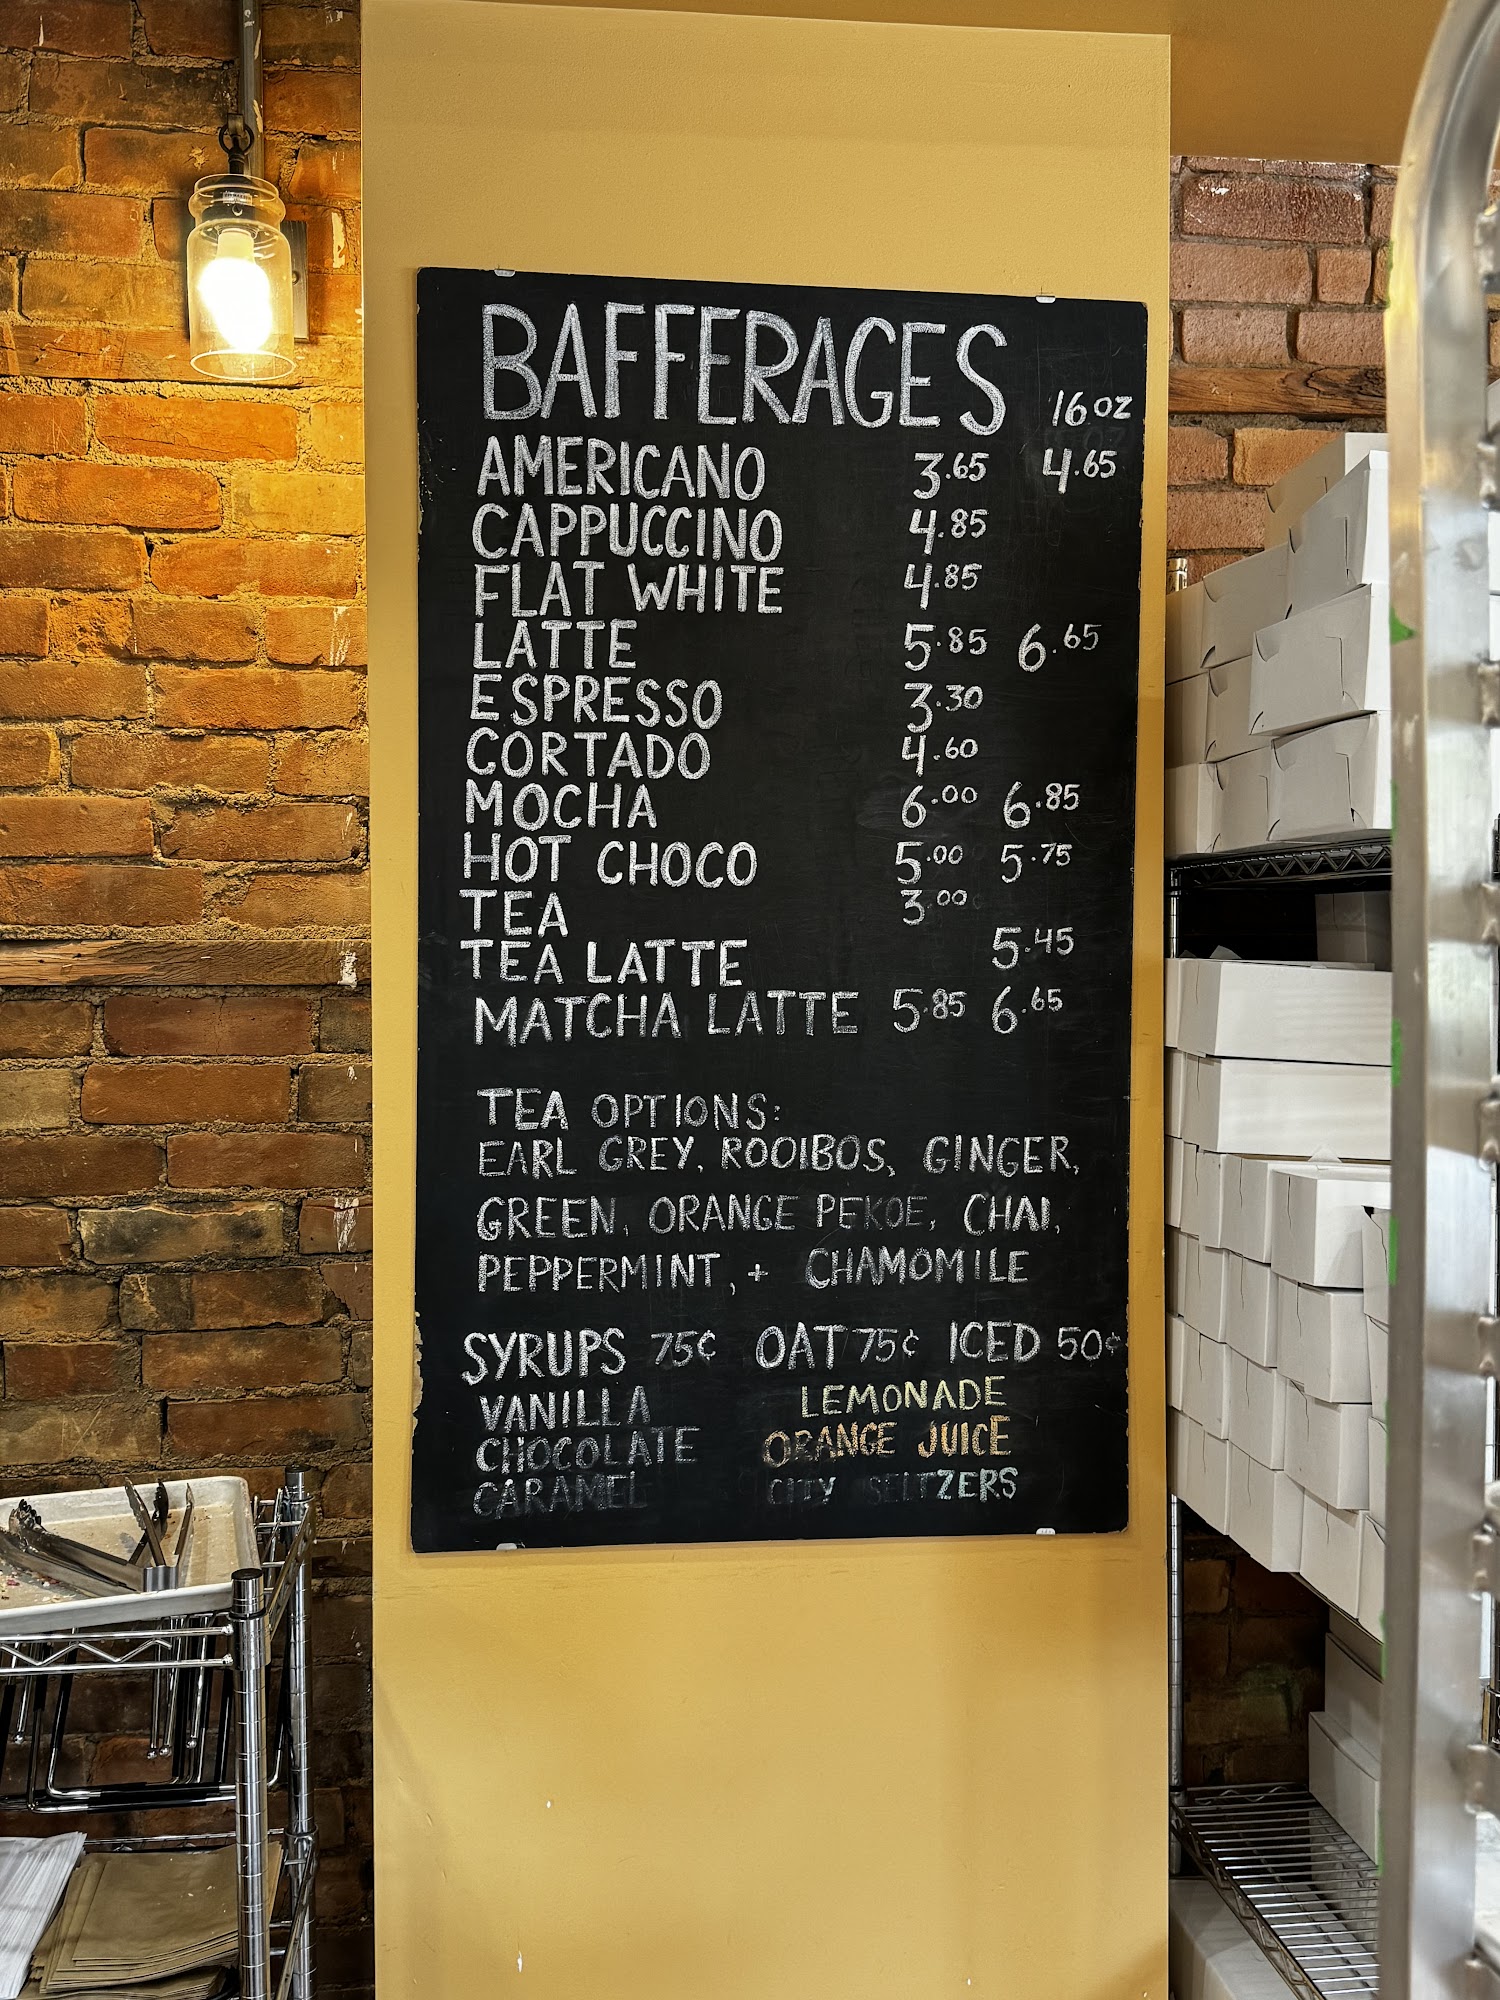 BAFFERAGES 16 OZ
AMERICANO 3.65 4.65
CAPPUCCINO 4.85
FLAT WHITE 4.85
LATTE 5.85 6.65
ESPRESSO 3.30
CORTADO 4.60
MOCHA 6.00 6.85
HOT CHOCO 5.00 5.75
TEA 3.00
TEA LATTE 5.45
MATCHA LATTE 5.85 6.65
TEA OPTIONS:
EARL GREY, ROOIBOS, GINGER,
GREEN, ORANGE PEKOE, CHAI,
PEPPERMINT, + CHAMOMILE
SYRUPS 75¢ OAT 75¢ ICED 50¢
VANILLA LEMONADE
CHOCOLATE ORANGE JUICE
CARAMEL CITY SELTZERS